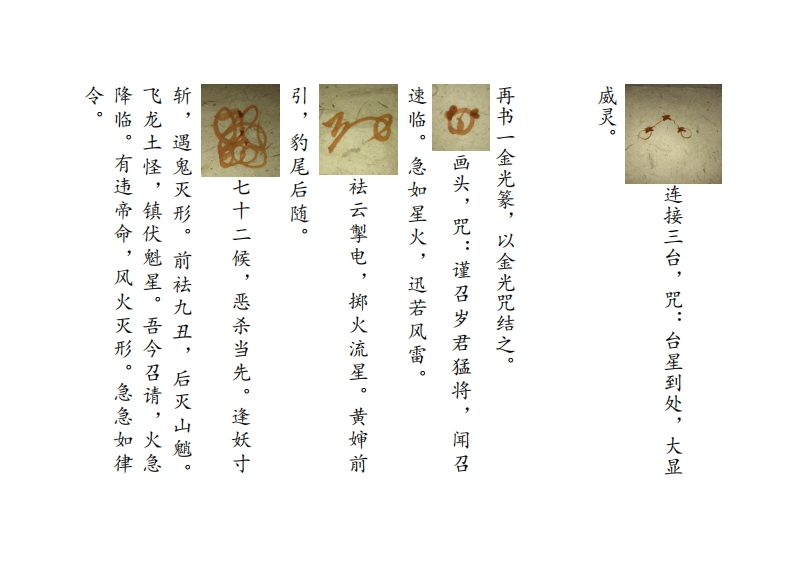 连接三台，咒：台星到处，大显
威灵。
再书一金光篆，以金光咒结之。
画头，咒：谨召岁君猛将，闻召
速临。急如星火，迅若风雷。
祛云掣电，掷火流星。黄婶前
引，豹尾后随。
七十二候，恶杀当先。逢妖寸
斩，遇鬼灭形。前祛九丑，后灭山魈。
飞龙土怪，镇伏魁星。吾今召请，火急
降临。有违帝命，风火灭形。急急如律
令。